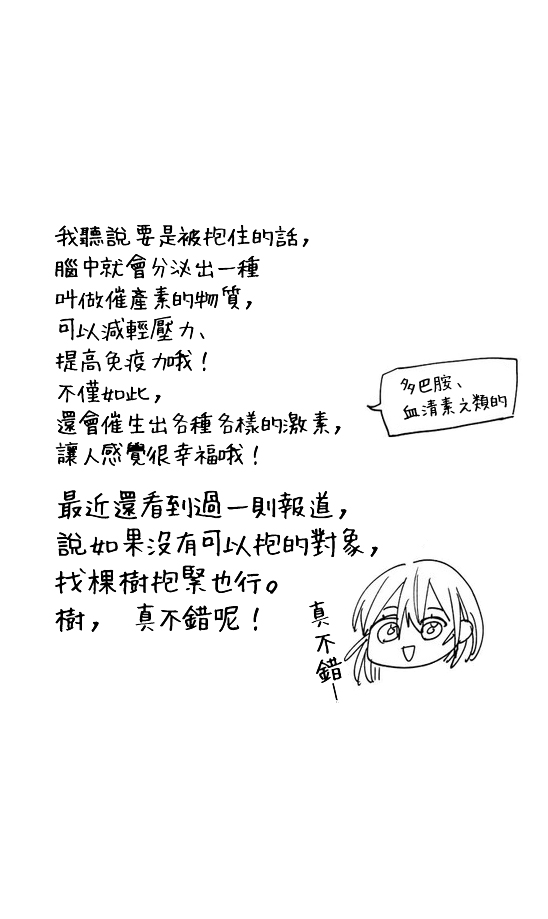 我聽說要是被抱住的話，
腦中就會分泌出一種
叫做催產素的物質，
可以減輕壓力、
提高免疫力哦！
不僅如此，
還會催生出各種各樣的激素，
讓人感覺很幸福哦！
多巴胺、
血清素之類的
最近還看到過一則報道，
說如果沒有可以抱的對象，
找棵樹抱緊也行。
樹， 真不錯呢！
真不錯—